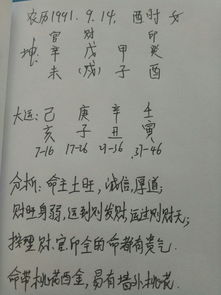 农历1991.9.14. 酉时 女
官 财 印
坤: 辛 戊 甲 癸
未 (戌) 子 酉
大运: 己 庚 辛 壬
亥 子 丑 寅
7-16 17-26 27-36 37-46
分析: 命主土旺, 诚信, 厚道;
财旺身弱, 运到则发财, 运过则财无;
按理财、官、印全的命都有贵气.
命带桃花酉金, 易有墙外桃花.